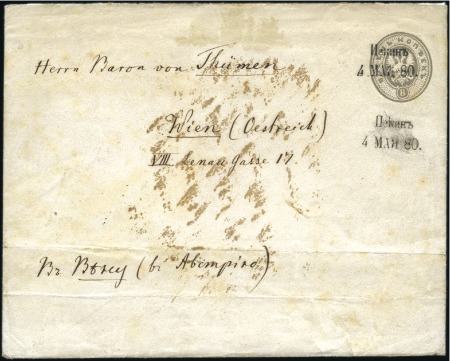 Пекинъ
4 МАЯ 80.
Herrn Baron von Thümen
Пекинъ
4 МАЯ 80.
Wien (Oestreich)
VIII Lenau Gasse 17.
Въ Вѣну (